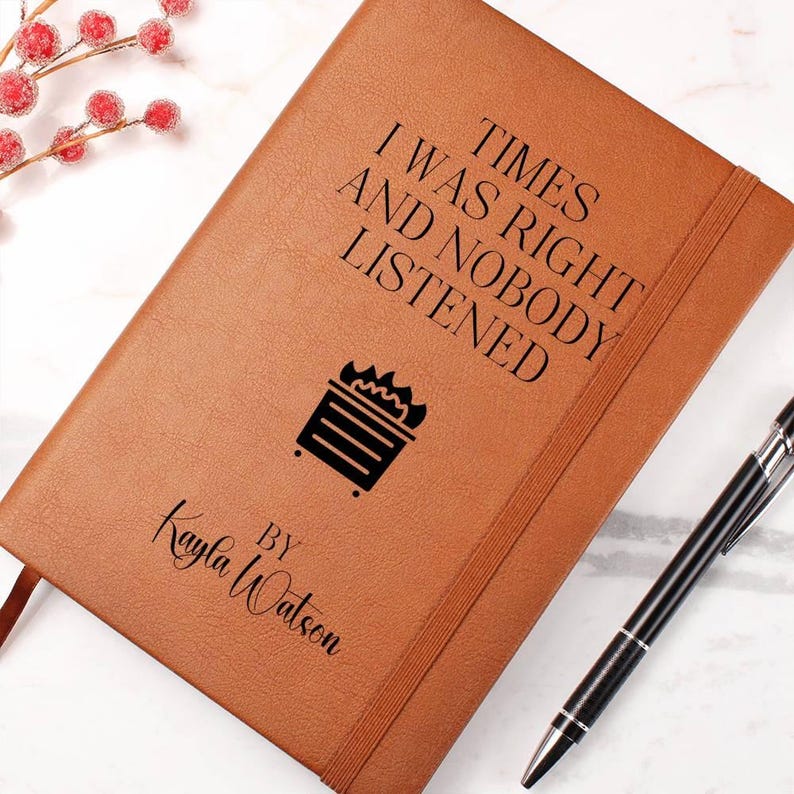 TIMES
I WAS RIGHT
AND NOBODY
LISTENED
BY
Kayla Watson